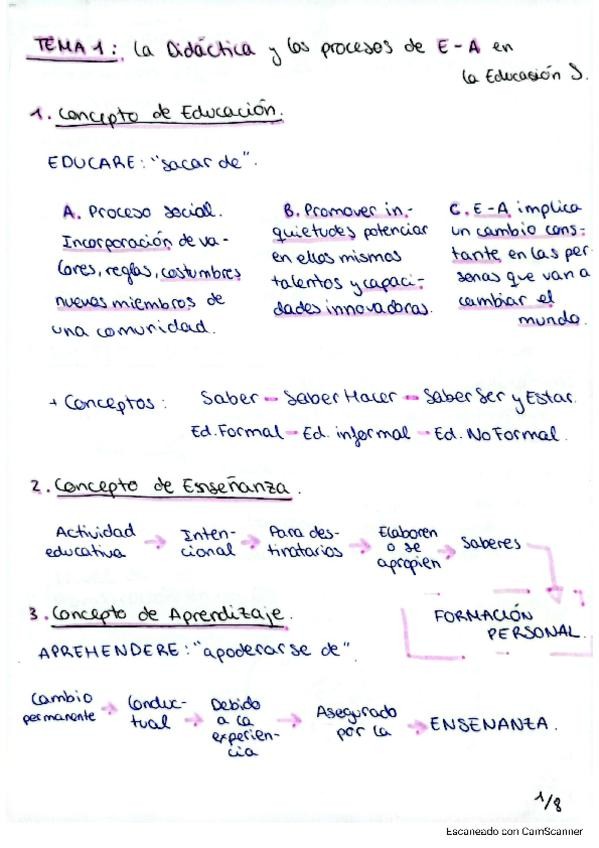 TEMA 1: La Didáctica y los procesos de E-A en
la Educación S.
1. Concepto de Educación.
EDUCARE: "sacar de".
A. Proceso social.
Incorporación de va-
lores, reglas, costumbres
nuevos miembros de
una comunidad.
B. Promover in-
quietudes, potenciar
en ellos mismos
talentos y capaci-
dades innovadoras.
C. E-A implica
un cambio cons-
tante, en las per
sonas que van a
cambiar el
mundo.
+ Conceptos: Saber - Saber Hacer - Saber Ser y Estar.
Ed. Formal - Ed. informal - Ed. No Formal.
2. Concepto de Enseñanza.
Actividad
educativa
Inten-
cional
Para des-
tinatarios
Elaboren
o se
apropien
Saberes
FORMACIÓN
PERSONAL.
3. Concepto de Aprendizaje.
APREHENDERE: "apoderarse de".
Cambio
permanente
Conduc-
tual
Debido
a la
experien-
cia
Asegurado
por la
ENSEÑANZA.
1/8
Escaneado con CamScanner